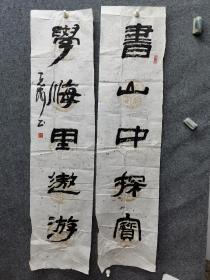 書山中探寶
學海里遨游